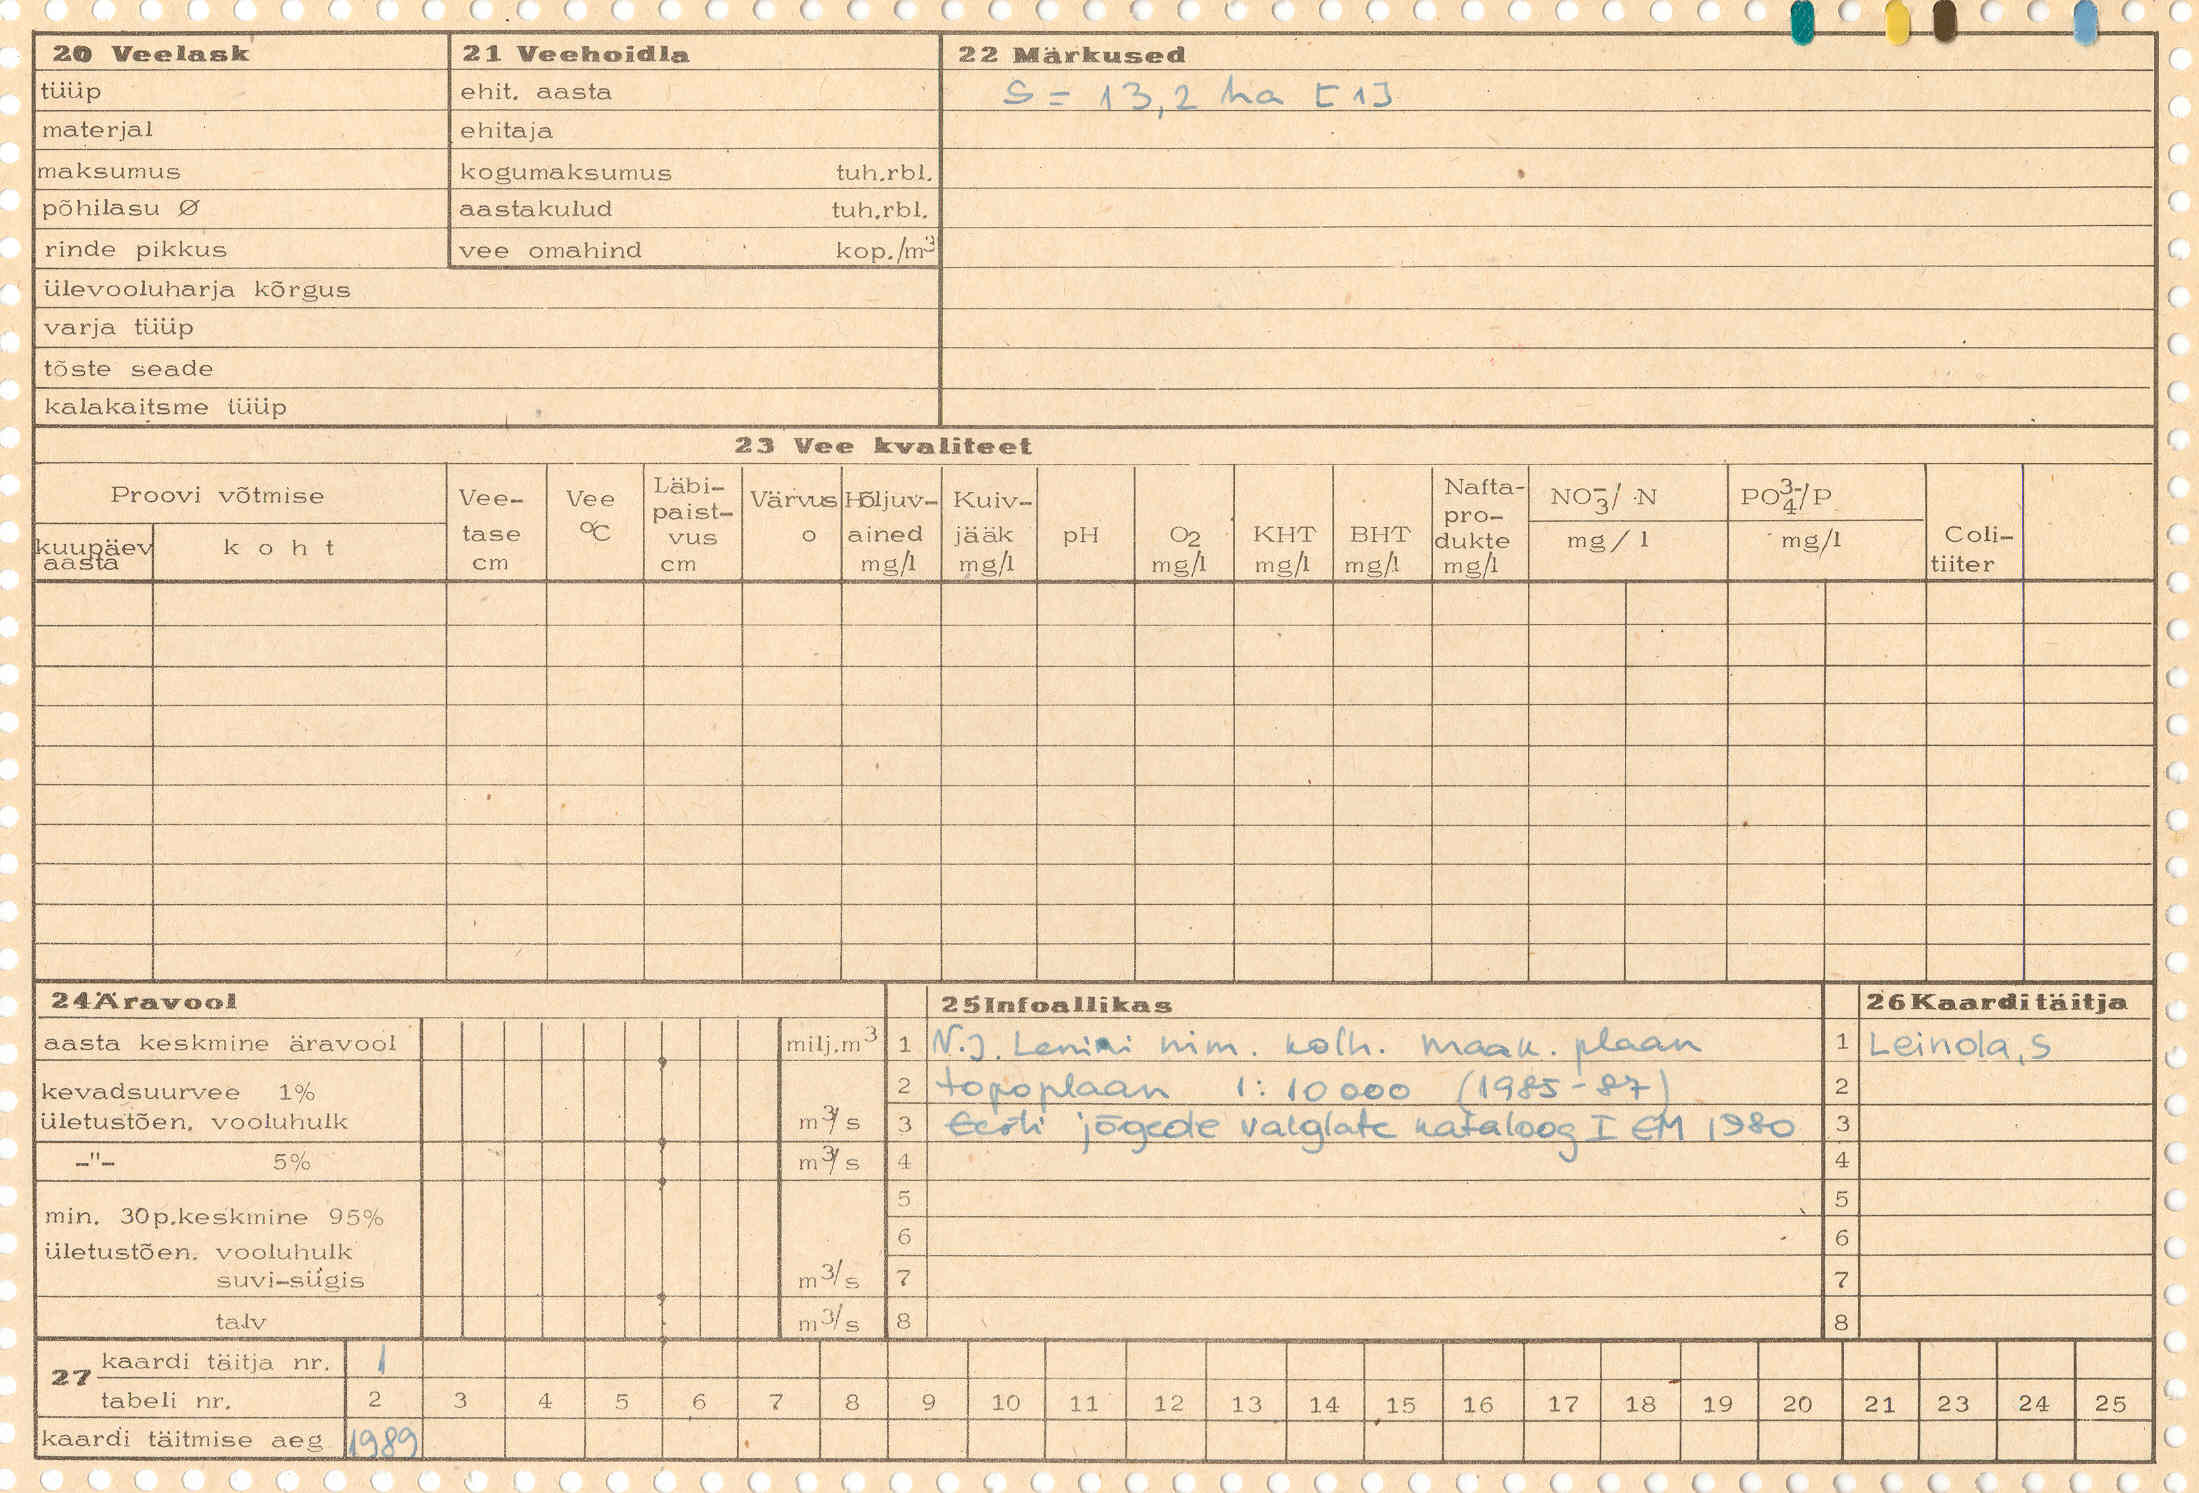 20 Veelask
tüüp
materjal
maksumus
põhilasu Ø
rinde pikkus
ülevooluharja kõrgus
varja tüüp
tõste seade
kalakaitsme tüüp
21 Veehoidla
ehit. aasta
ehitaja
kogumaksumus tuh.rbl.
aastakulud tuh.rbl.
vee omahind kop./m³
22 Märkused
S = 13,2 ha [1]
23 Vee kvaliteet
Proovi võtmise
kuupäev
aasta
koht
Vee-
tase
cm
Vee
°C
Läbi-
paist-
vus
cm
Värvus
o
Hõljuv-
ained
mg/l
Kuiv-
jääk
mg/l
pH
O2
mg/l
KHT
mg/l
BHT
mg/l
Nafta-
pro-
dukte
mg/l
NO₃⁻/ N
mg/l
PO₄³⁻/P
mg/l
Coli-
tiiter
24 Äravool
aasta keskmine äravool milj.m³
kevadsuurvee 1%
ületustõen. vooluhulk m³/s
-"- 5% m³/s
min. 30p.keskmine 95%
ületustõen. vooluhulk
suvi-sügis m³/s
talv m³/s
25 Infoallikas
1 N.J. Lenini nim. kolh. maak. plaan
2 topoplaan 1:10 000 (1985-87)
3 Eesti jõgede valglate kataloog I EM 1980
4
5
6
7
8
26 Kaarditäitja
1 Leinola, S
2
3
4
5
6
7
8
27 kaardi täitja nr. 1
tabeli nr. 2 3 4 5 6 7 8 9 10 11 12 13 14 15 16 17 18 19 20 21 23 24 25
kaardi täitmise aeg 1989